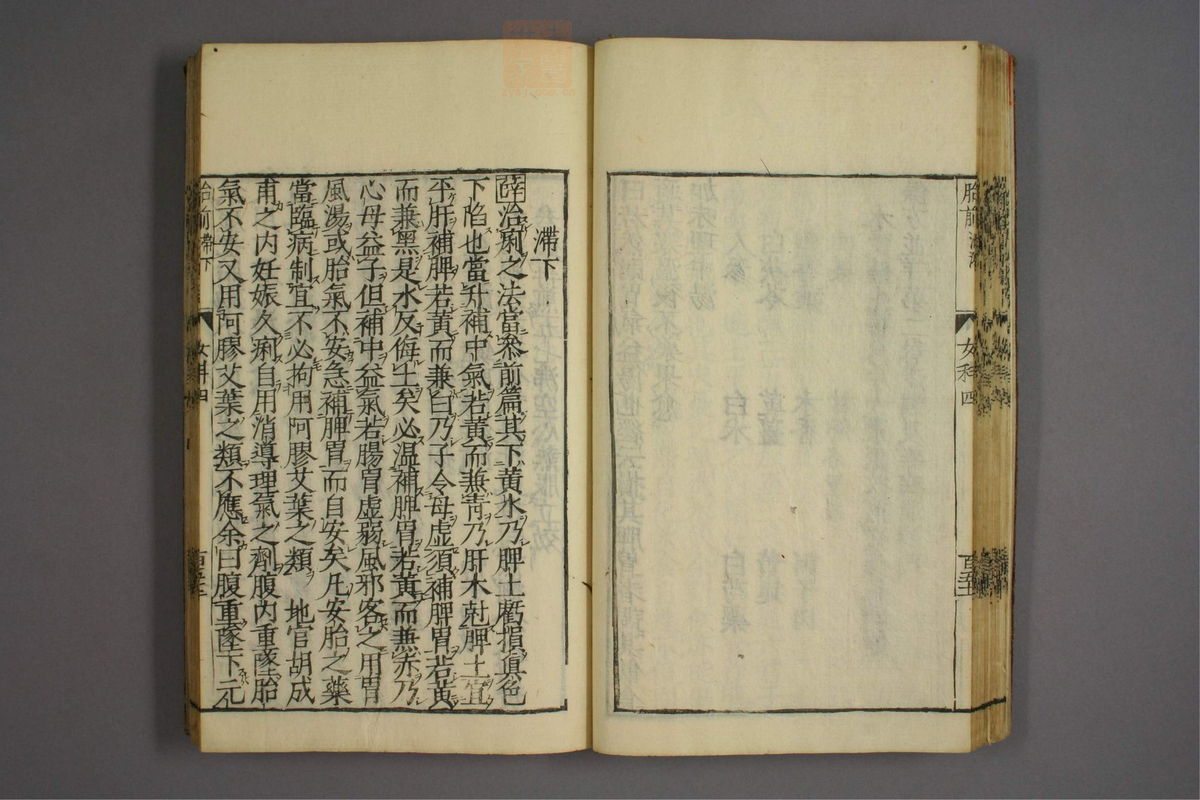 胎前
女科四
滯下
薛治痢之法當參前篇其下黃水乃脾土虧損眞氣
下陷也當升補中氣若黃而兼靑乃肝木尅脾土宜
平肝補脾若黃而兼白乃子令母虛須補脾胃若黃
而兼黑是水反侮土矣必溫補脾胃若黃而兼赤乃
心母益子但補中益氣若腸胃虛弱風邪客之用胃
風湯或胎氣不安急補脾胃而自安矣凡安胎之藥
當臨病制宜不必拘用阿膠艾葉之類 地官胡成
甫之内妊娠久痢自用消導理氣之劑腹内重墜胎
氣不安又用阿膠艾葉之類不應余曰腹重墜下元
胎前 滯下
女科四